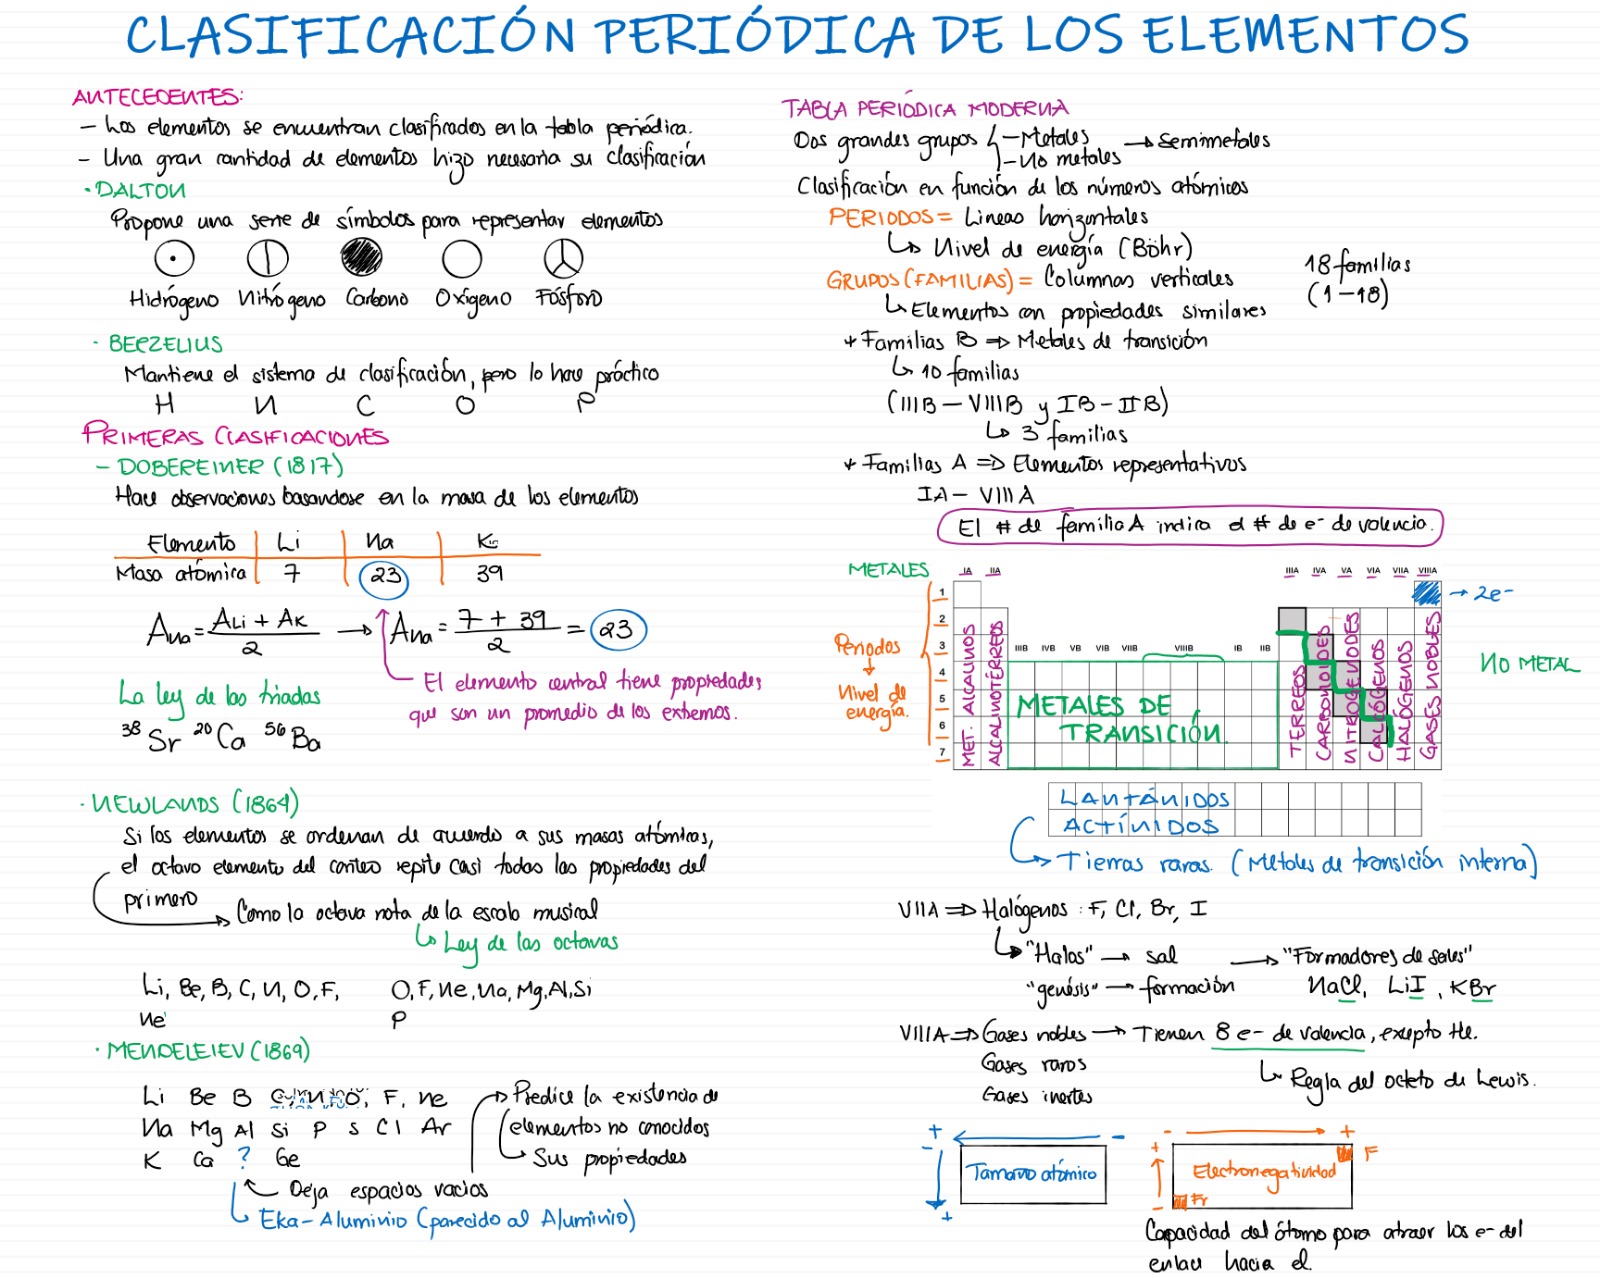 CLASIFICACIÓN PERIÓDICA DE LOS ELEMENTOS
ANTECEDENTES:
- Los elementos se encuentran clasificados en la tabla periódica.
- Una gran cantidad de elementos hizo necesaria su clasificación
· DALTON
Propone una serie de símbolos para representar elementos
Hidrógeno Nitrógeno Carbono Oxígeno Fósforo
· BERZELIUS
Mantiene el sistema de clasificación, pero lo hace práctico
H N C O P
PRIMERAS CLASIFICACIONES
- DOBEREINER (1817)
Hace observaciones basandose en la masa de los elementos
Elemento Li Na K
Masa atómica 7 23 39
ANa = ALi + AK / 2 → ANa = 7 + 39 / 2 = 23
El elemento central tiene propiedades
que son un promedio de los extremos.
La ley de las triadas
38 Sr 20 Ca 56 Ba
· NEWLANDS (1864)
Si los elementos se ordenan de acuerdo a sus masas atómicas,
el octavo elemento del conteo repite casi todas las propiedades del
primero → Como la octava nota de la escala musical
↳ Ley de las octavas
Li, Be, B, C, N, O, F, O, F, Ne, Na, Mg, Al, Si
Ne P
· MENDELEIEV (1869)
Li Be B C, N, O, F, Ne
Na Mg Al Si P S Cl Ar
K Ca ? Ge
→ Predice la existencia de
elementos no conocidos
→ Sus propiedades
Deja espacios vacios
Eka-Aluminio (parecido al Aluminio)
TABLA PERIÓDICA MODERNA
Dos grandes grupos - Metales → Semimetales
- No metales
Clasificación en función de los números atómicos
PERIODOS = Lineas horizontales
↳ Nivel de energía (Böhr)
GRUPOS (FAMILIAS) = Columnas verticales
18 familias
(1-18)
↳ Elementos con propiedades similares
+ Familias B ⇒ Metales de transición
↳ 10 familias
(IIIB - VIIIB y IB - IIB)
↳ 3 familias
+ Familias A ⇒ Elementos representativos
IA - VIIIA
El # de familia A indica el # de e- de valencia.
METALES IA IIA IIIA IVA VA VIA VIIA VIIIA
1 2 3 4 5 6 7
→ 2e-
Periodos
↓
Nivel de
energía.
IIIB IVB VB VIB VIIB VIIIB IB IIB
MET. ALCALINOS
ALCALINOTÉRREOS
METALES DE
TRANSICIÓN
TERREOS
CARBONOIDES
NITROGENOIDES
CALCÓGENOS
HALÓGENOS
GASES NOBLES
NO METAL
LANTÁNIDOS
ACTÍNIDOS
→ Tierras raras. (Metales de transición interna)
VIIA ⇒ Halógenos : F, Cl, Br, I
↳ "Halos" → sal → "Formadores de sales"
"genésis" → formación NaCl, LiI, KBr
VIIIA ⇒ Gases nobles → Tienen 8 e- de valencia, excepto He.
Gases raros
↳ Regla del octeto de Lewis.
Gases inertes
+ -
- +
Tamaño atómico
- +
+ -
Electronegatividad
F
Fr
Capacidad del átomo para atraer los e- del
enlace hacia el.